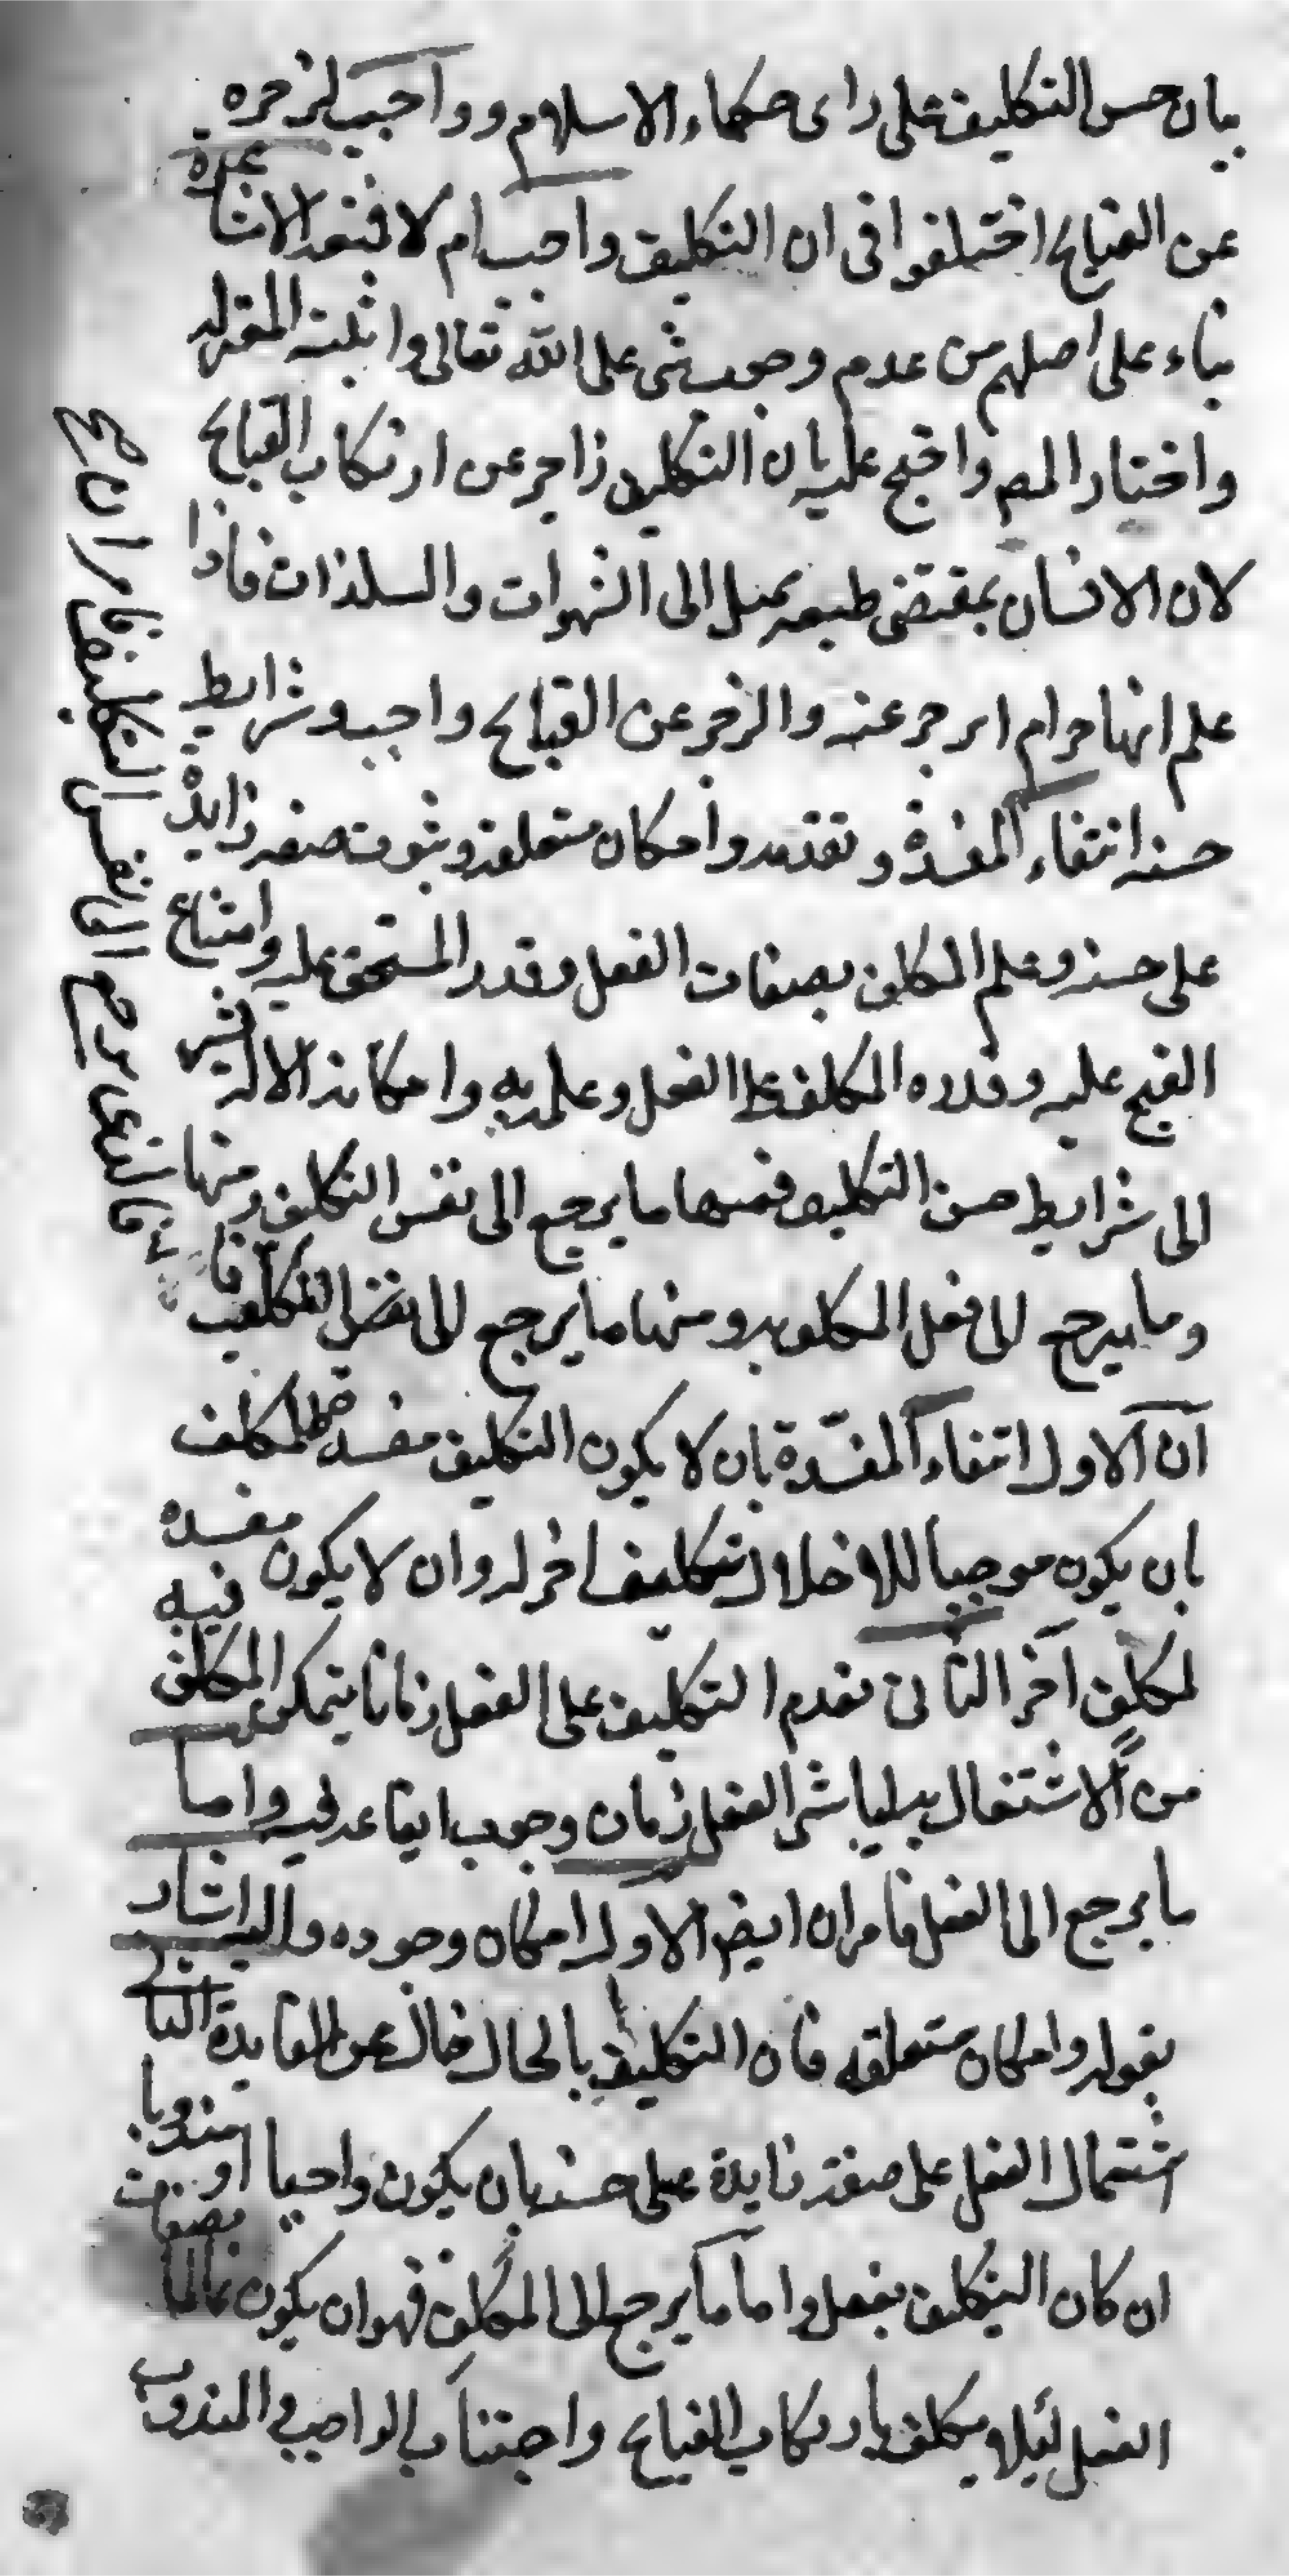 بيان حسن التكليف على راى حكماء الاسلام وواجب لزجره
عن القبايح اختلفوا فى ان التكليف واجب ام لا فنعه الاشاعرة
بناء على اصلهم من عدم وجوب شى على الله تعالى واثبته المعتزله
واختار المص واحتج عليه بان التكليف زاجر عن ارتكاب القبايح
لان الانسان بمقتضى طبعه يميل الى الشهوات والمسلذات فاذا
علم انها حرام انزجر عنه والزجر عن القبايح واجب وشرايط
حسنه انتفاء المفسدة وتقدمه وامكان متعلقه وثبوت صفه زايدة
على حسنه وعلم المكلف بصفات الفعل وقدر المستحق عليه وامتناع
القبيح عليه وقدره المكلف على الفعل وعلمه به وامكانه الالة يشير
الى شرايط حسن التكليف فمنها ما يرجع الى نفس التكليف ومنها
وما يرجع الى فعل المكلف به ومنها ما يرجع الى المكلف
فالذى يرجع الى نفس التكليف امران ع
ان الاول انتفاء المفسدة بان لا يكون التكليف مفسدة للمكلف
بان يكون موجبا للاخلال بتكليف اخر له وان لا يكون مفسده فيه
لمكلف آخر الثانى تقدم التكليف على الفعل زمانا يتمكن المكلف
من الاشتغال به ليباشر الفعل زمان وجوب ايقاعه فيه واما
ما يرجع الى الفعل فامران ايضا الاول امكان وجوده واليه اشار
بقوله وامكان متعلقه فان التكليف بالمحال خال عن الفايدة الثانى
اشتمال الفعل على صفة زايدة على حسنه بان يكون واجبا او مندوبا
ان كان التكليف بفعل واما ما يرجع الى المكلف فهو ان يكون عالما بصفات
الفعل لئلا يكلف بارتكاب القبايح واجتناب الواجب والمندوب